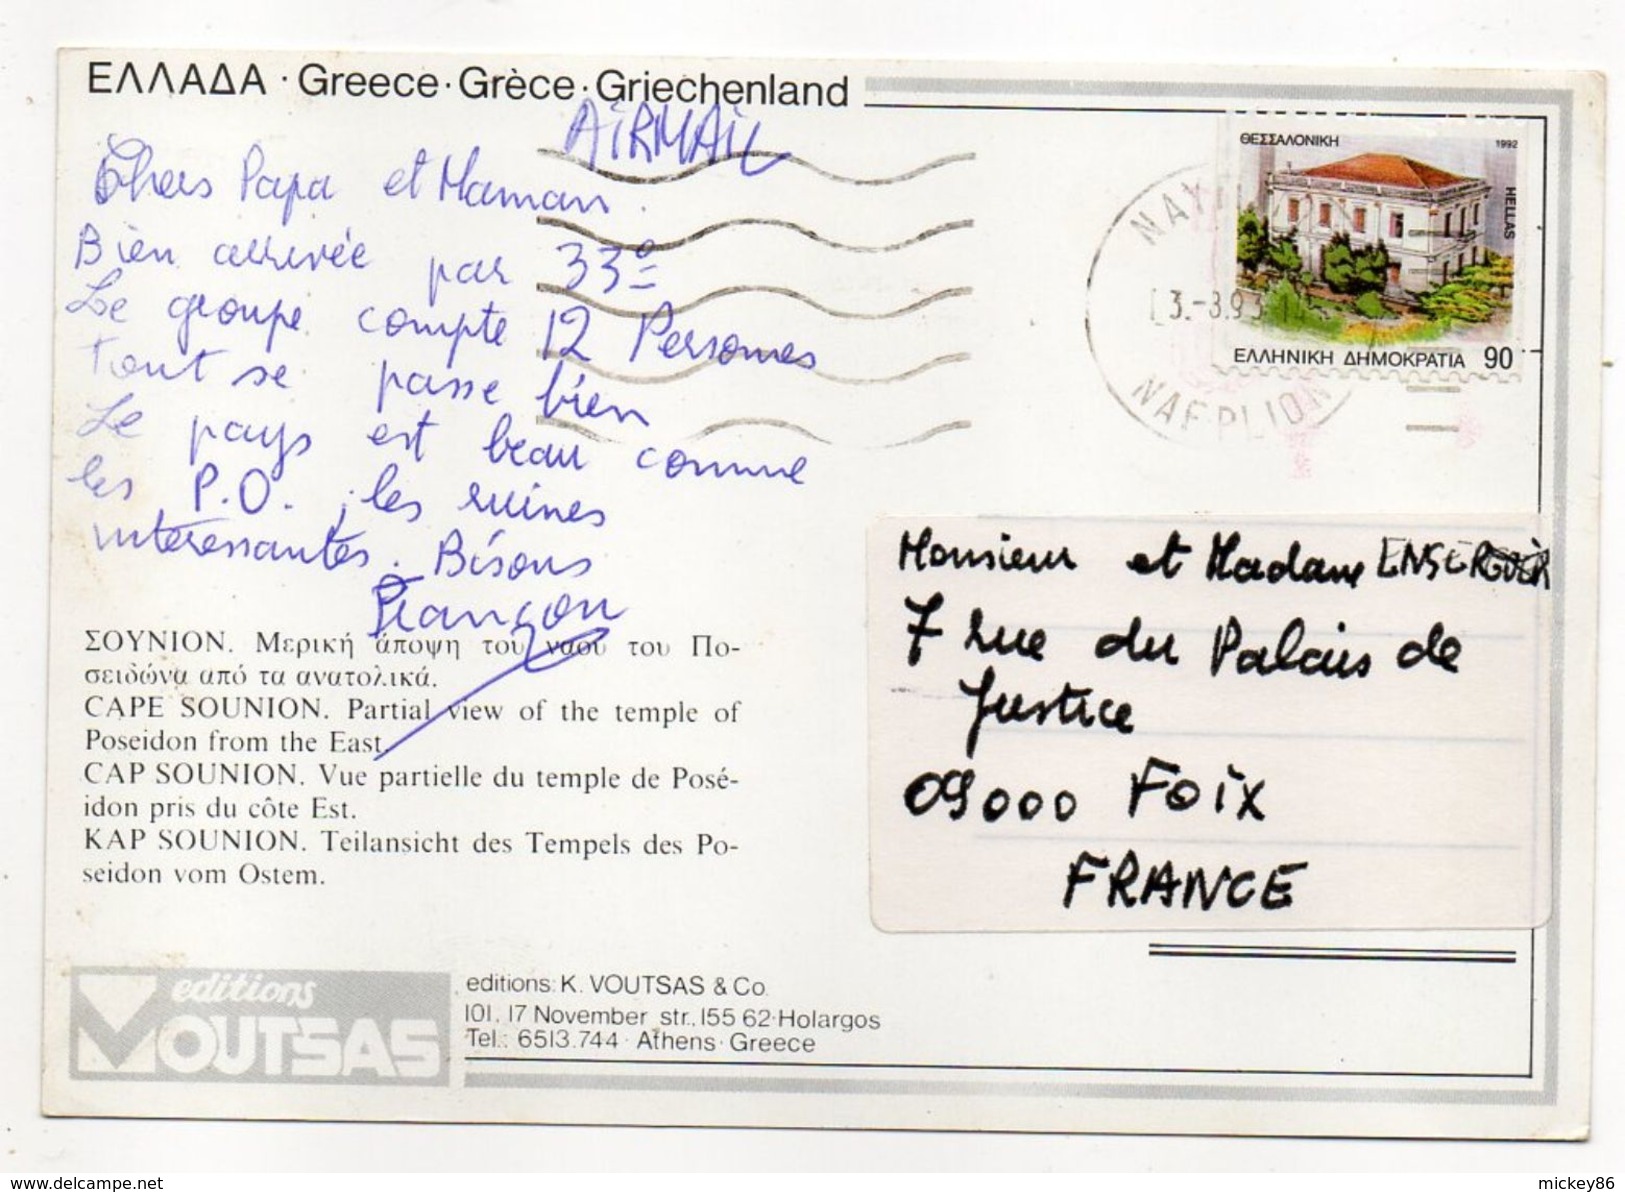 ΕΛΛΑΔΑ · Greece · Grèce · Griechenland
AiRMAiL
Chers Papa et Maman.
Bien arrivée par 33°
Le groupe compte 12 Personnes
Tout se passe bien
Le pays est beau comme
les P.O. ; les ruines
intéressantes. Bisous
ΣΟΥΝΙΟΝ. Μερική άποψη του ναού του Πο-
σειδώνα από τα ανατολικά.
CAPE SOUNION. Partial view of the temple of
Poseidon from the East.
CAP SOUNION. Vue partielle du temple de Posé-
idon pris du côte Est.
KAP SOUNION. Teilansicht des Tempels des Po-
seidon vom Ostem.
editions
VOUTSAS
editions: K. VOUTSAS & Co.
101, 17 November str., 155 62 · Holargos
Tel.: 6513.744 · Athens · Greece
ΘΕΣΣΑΛΟΝΙΚΗ 1992
HELLAS
ΕΛΛΗΝΙΚΗ ΔΗΜΟΚΡΑΤΙΑ 90
NAFPLION
Monsieur et Madame
7 rue du Palais de
Justice
09000 FOiX
FRANCE
delcampe.net
mickey86